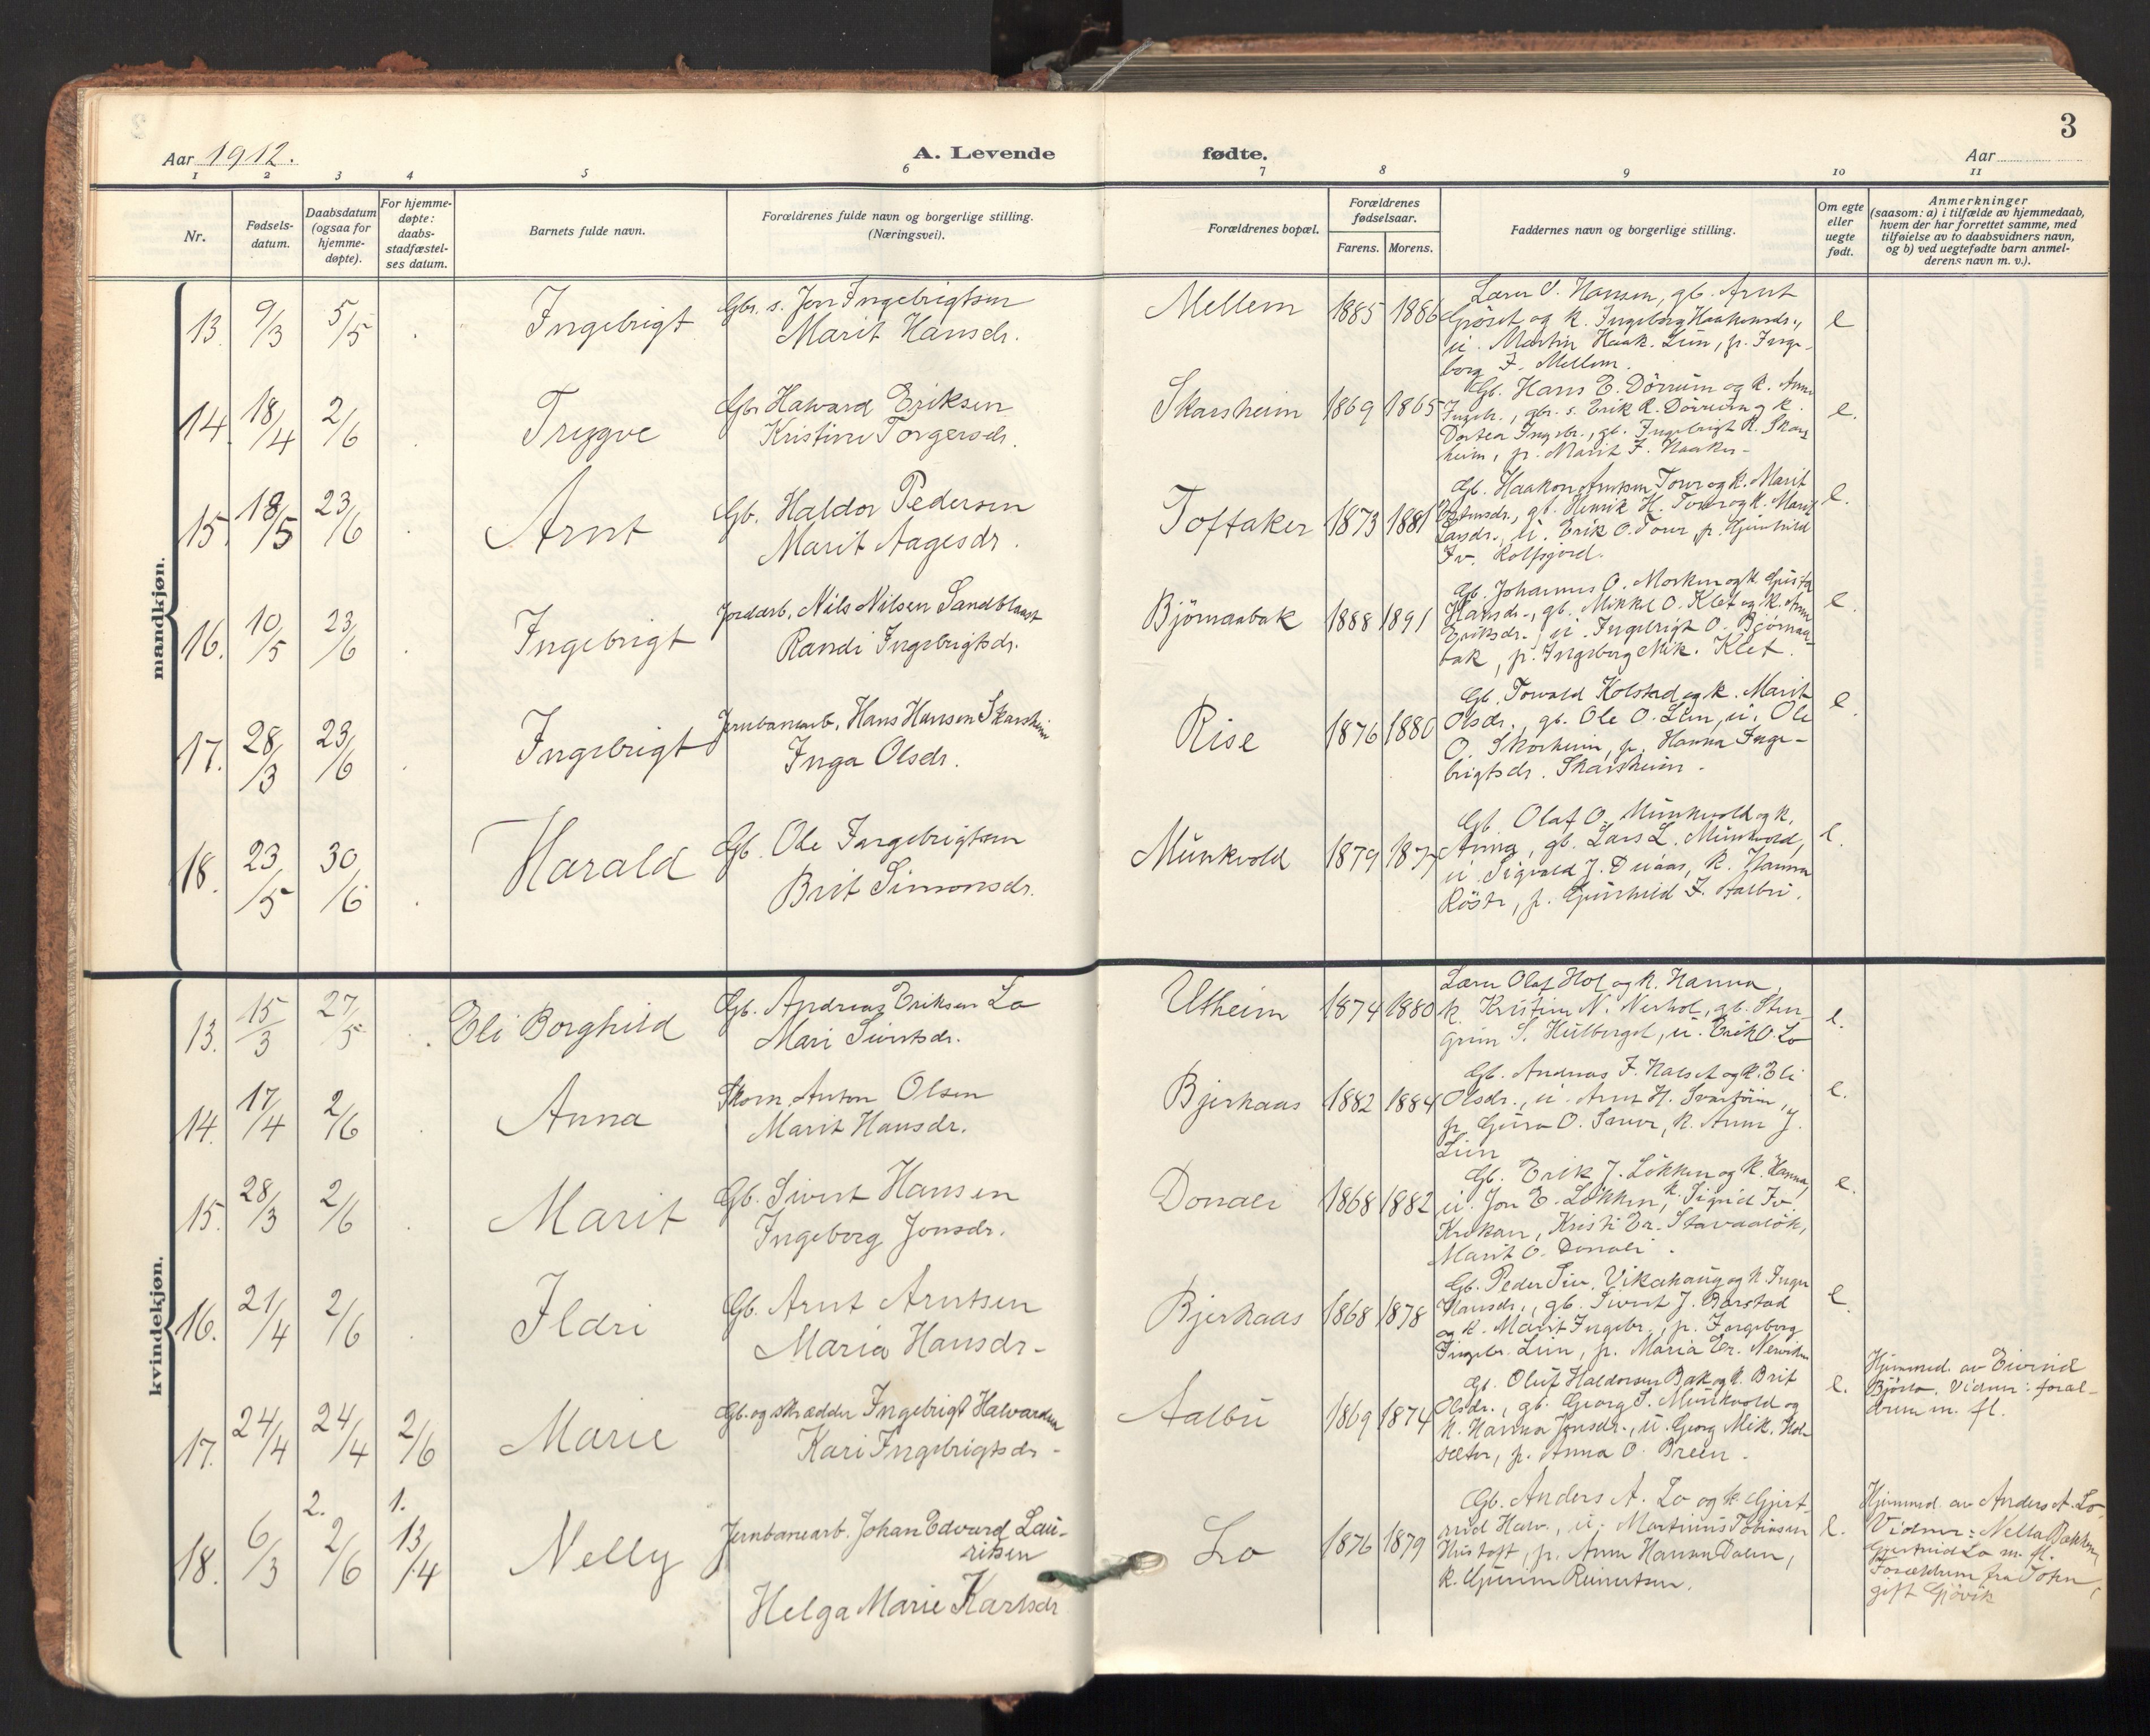 3
Aar 1912.
A. Levende fødte.
Aar
1 2 3 4 5 6 7 8 9 10 11
Nr.
Fødsels-
datum.
Daabsdatum
(ogsaa for
hjemme-
døpte).
For hjemme-
døpte:
daabs-
stadfæstel-
ses datum.
Barnets fulde navn.
Forældrenes fulde navn og borgerlige stilling.
(Næringsvei).
Forældrenes bopæl.
Forældrenes
fødselsaar.
Farens. Morens.
Faddernes navn og borgerlige stilling.
Om egte
eller
uegte
født.
Anmerkninger
(saasom: a) i tilfælde av hjemmedaab,
hvem der har forrettet samme, med
tilføielse av to daabsvidners navn,
og b) ved uegtefødte barn anmel-
derens navn m. v.).
mandkjøn.
13. 9/3 5/5 Ingebrigt
Gbr. s. Jon Ingebrigtsen
Marit Hansdr.
Mellem 1885 1886
Lærer S. Hansen, gb. Arnt
Gröset og k. Ingeborg Haakensdr.,
u. Martin Haak. Lun, p. Inge-
borg I. Mellem.
e
14. 18/4 2/6 Trygve
Gbr. Halvard Eriksen
Kristine Torgersdr.
Skarsheim 1869 1865
Gb. Hans E. Dörrum og k. Anne
Ingebr., gbr. s. Erik R. Dörrum og k.
Dortea Ingebr., gb. Ingebrigt R. Skars
heim, p. Marit I. Haaker-
e.
15. 18/5 23/6 Arnt
Gb. Haldor Pedersen
Marit Aagesdr.
Toftaker 1873 1881
Gb. Haakon Arntsen Tour og k. Marit
gb. Henrik H. Tour og k. Marit
Larsdr., u. Erik O. Tour, p. Gunhild
Iv. Rolfsjord.
e.
16. 10/5 23/6 Ingebrigt
Jordarb. Nils Nilsen Sandblaast
Randi Ingebrigtsdr.
Björnaabak 1888 1891
Gb. Johannes O. Morken og k. Gusta
Hansdr., gb. Mikkel O. Klet og k. Anne
Eriksdr., u. Ingebrigt O. Björnaa-
bak, p. Ingeborg Mik. Klet.
e.
17. 28/3 23/6 Ingebrigt
Jernbanearb. Hans Hansen Skarsheim
Inga Olsdr.
Rise 1876 1880
Gb. Torvald Kolstad og k. Marit
Olsdr., gb. Ole O. Lun, u. Ole
O. Skorheim, p. Hanna Inge-
brigtsdr. Skarsheim.
e.
18. 23/5 30/6 Harald
Gb. Ole Ingebrigtsen
Brit Simonsdr.
Munkvold 1879 1877
Gb. Olaf O. Munkvold og k.
Anna, gb. Lars L. Munkvold,
u. Sigvald J. Duaas, k. Hanna
Röstr, p. Gunhild I. Aalbu.
e.
kvindekjøn.
13. 15/3 27/5 Eli Borghild
Gb. Andreas Eriksen Lo
Mari Sivertsdr.
Utheim 1874 1880
Lærer Olaf Hol og k. Hanna,
k. Kristine N. Nerhol, gb. Sten-
grim S. Hulberget, u. Erik O. Lo
e.
14. 17/4 2/6 Anna
Skom. Anton Olsen
Marit Hansdr.
Bjerkaas 1882 1884
Gb. Andreas I. Halset og k. Eli
Olsdr., u. Arnt H. Svartöien,
p. Gura O. Snuer, k. Anne J.
Lun
e.
15. 28/3 2/6 Marit
Gb. Sivert Hansen
Ingeborg Jonsdr.
Donali 1868 1882
Gb. Erik J. Lökken og k. Hanna,
u. Jon E. Lökken, k. Sigrid Iv.
Krokan, Kristi Er. Stavaalök,
Marit O. Donali.
e.
16. 21/4 2/6 Ildri
Gb. Arnt Arntsen
Maria Hansdr.
Bjerkaas 1868 1878
Gb. Peder Siv. Vikahaug og k. Inger
Hansdr., gb. Sivert J. Barstad
og k. Marit Ingebr., p. Ingeborg
Ingebr. Lun, p. Maria Er. Nerviken
e.
17. 24/4 24/4 2/6 Marie
Gb. og skrædder Ingebrigt Halvardsen
Kari Ingebrigtsdr.
Aalbu 1869 1874
Gb. Oluf Haldorsen Bak og k. Brit
Olsdr., gb. Georg S. Munkvold og
k. Hanna Jonsdr., u. Georg Mik. Hol-
sæter, p. Anna O. Breen.
e.
Hjemmed. av Eivind
Bjösta. Vidner: foræl-
drene m. fl.
18. 6/3 2. 2/6 1. 13/4 Nelly
Jernbanearb. Johan Edvard Lau-
ritsen
Helga Marie Karlsdr
Lo 1876 1879
Gb. Anders A. Lo og k. Gjert-
rud Halv., u. Martinus Tobiassen
Hustoft, p. Anne Hansen Dalen,
k. Gurine Reinertsen.
e.
Hjemmed. av Anders A. Lo,
Vidner: Nella Bakken,
Gjertrud Lo m. fl.
Forældrene fra Toten,
gift Gjövik